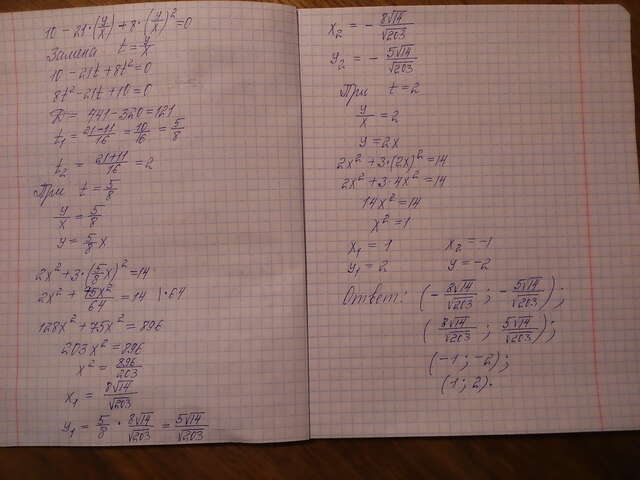 10 - 21·(y/x) + 8·(y/x)² = 0
Замена t = y/x
10 - 21t + 8t² = 0
8t² - 21t + 10 = 0
D = 441 - 320 = 121
t₁ = (21-11)/16 = 10/16 = 5/8
t₂ = (21+11)/16 = 2
При t = 5/8
y/x = 5/8
y = 5/8 x
2x² + 3·(5/8 x)² = 14
2x² + 75x²/64 = 14 |·64
128x² + 75x² = 896
203x² = 896
x² = 896/203
x₁ = 8√14/√203
y₁ = 5/8 · 8√14/√203 = 5√14/√203
x₂ = - 8√14/√203
y₂ = - 5√14/√203
При t = 2
y/x = 2
y = 2x
2x² + 3·(2x)² = 14
2x² + 3·4x² = 14
14x² = 14
x² = 1
x₁ = 1 x₂ = -1
y₁ = 2 y = -2
Ответ: (- 8√14/√203 ; - 5√14/√203);
(8√14/√203 ; 5√14/√203);
(-1; -2);
(1; 2).